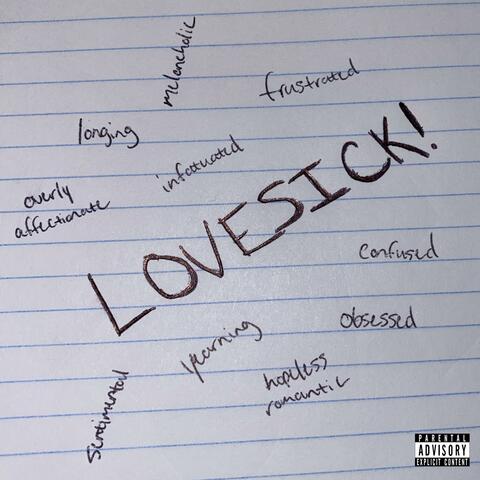 melancholic
frustrated
longing
infatuated
overly
affectionate
LOVESICK!
confused
obsessed
yearning
hopeless
romantic
sentimental
PARENTAL
ADVISORY
EXPLICIT CONTENT